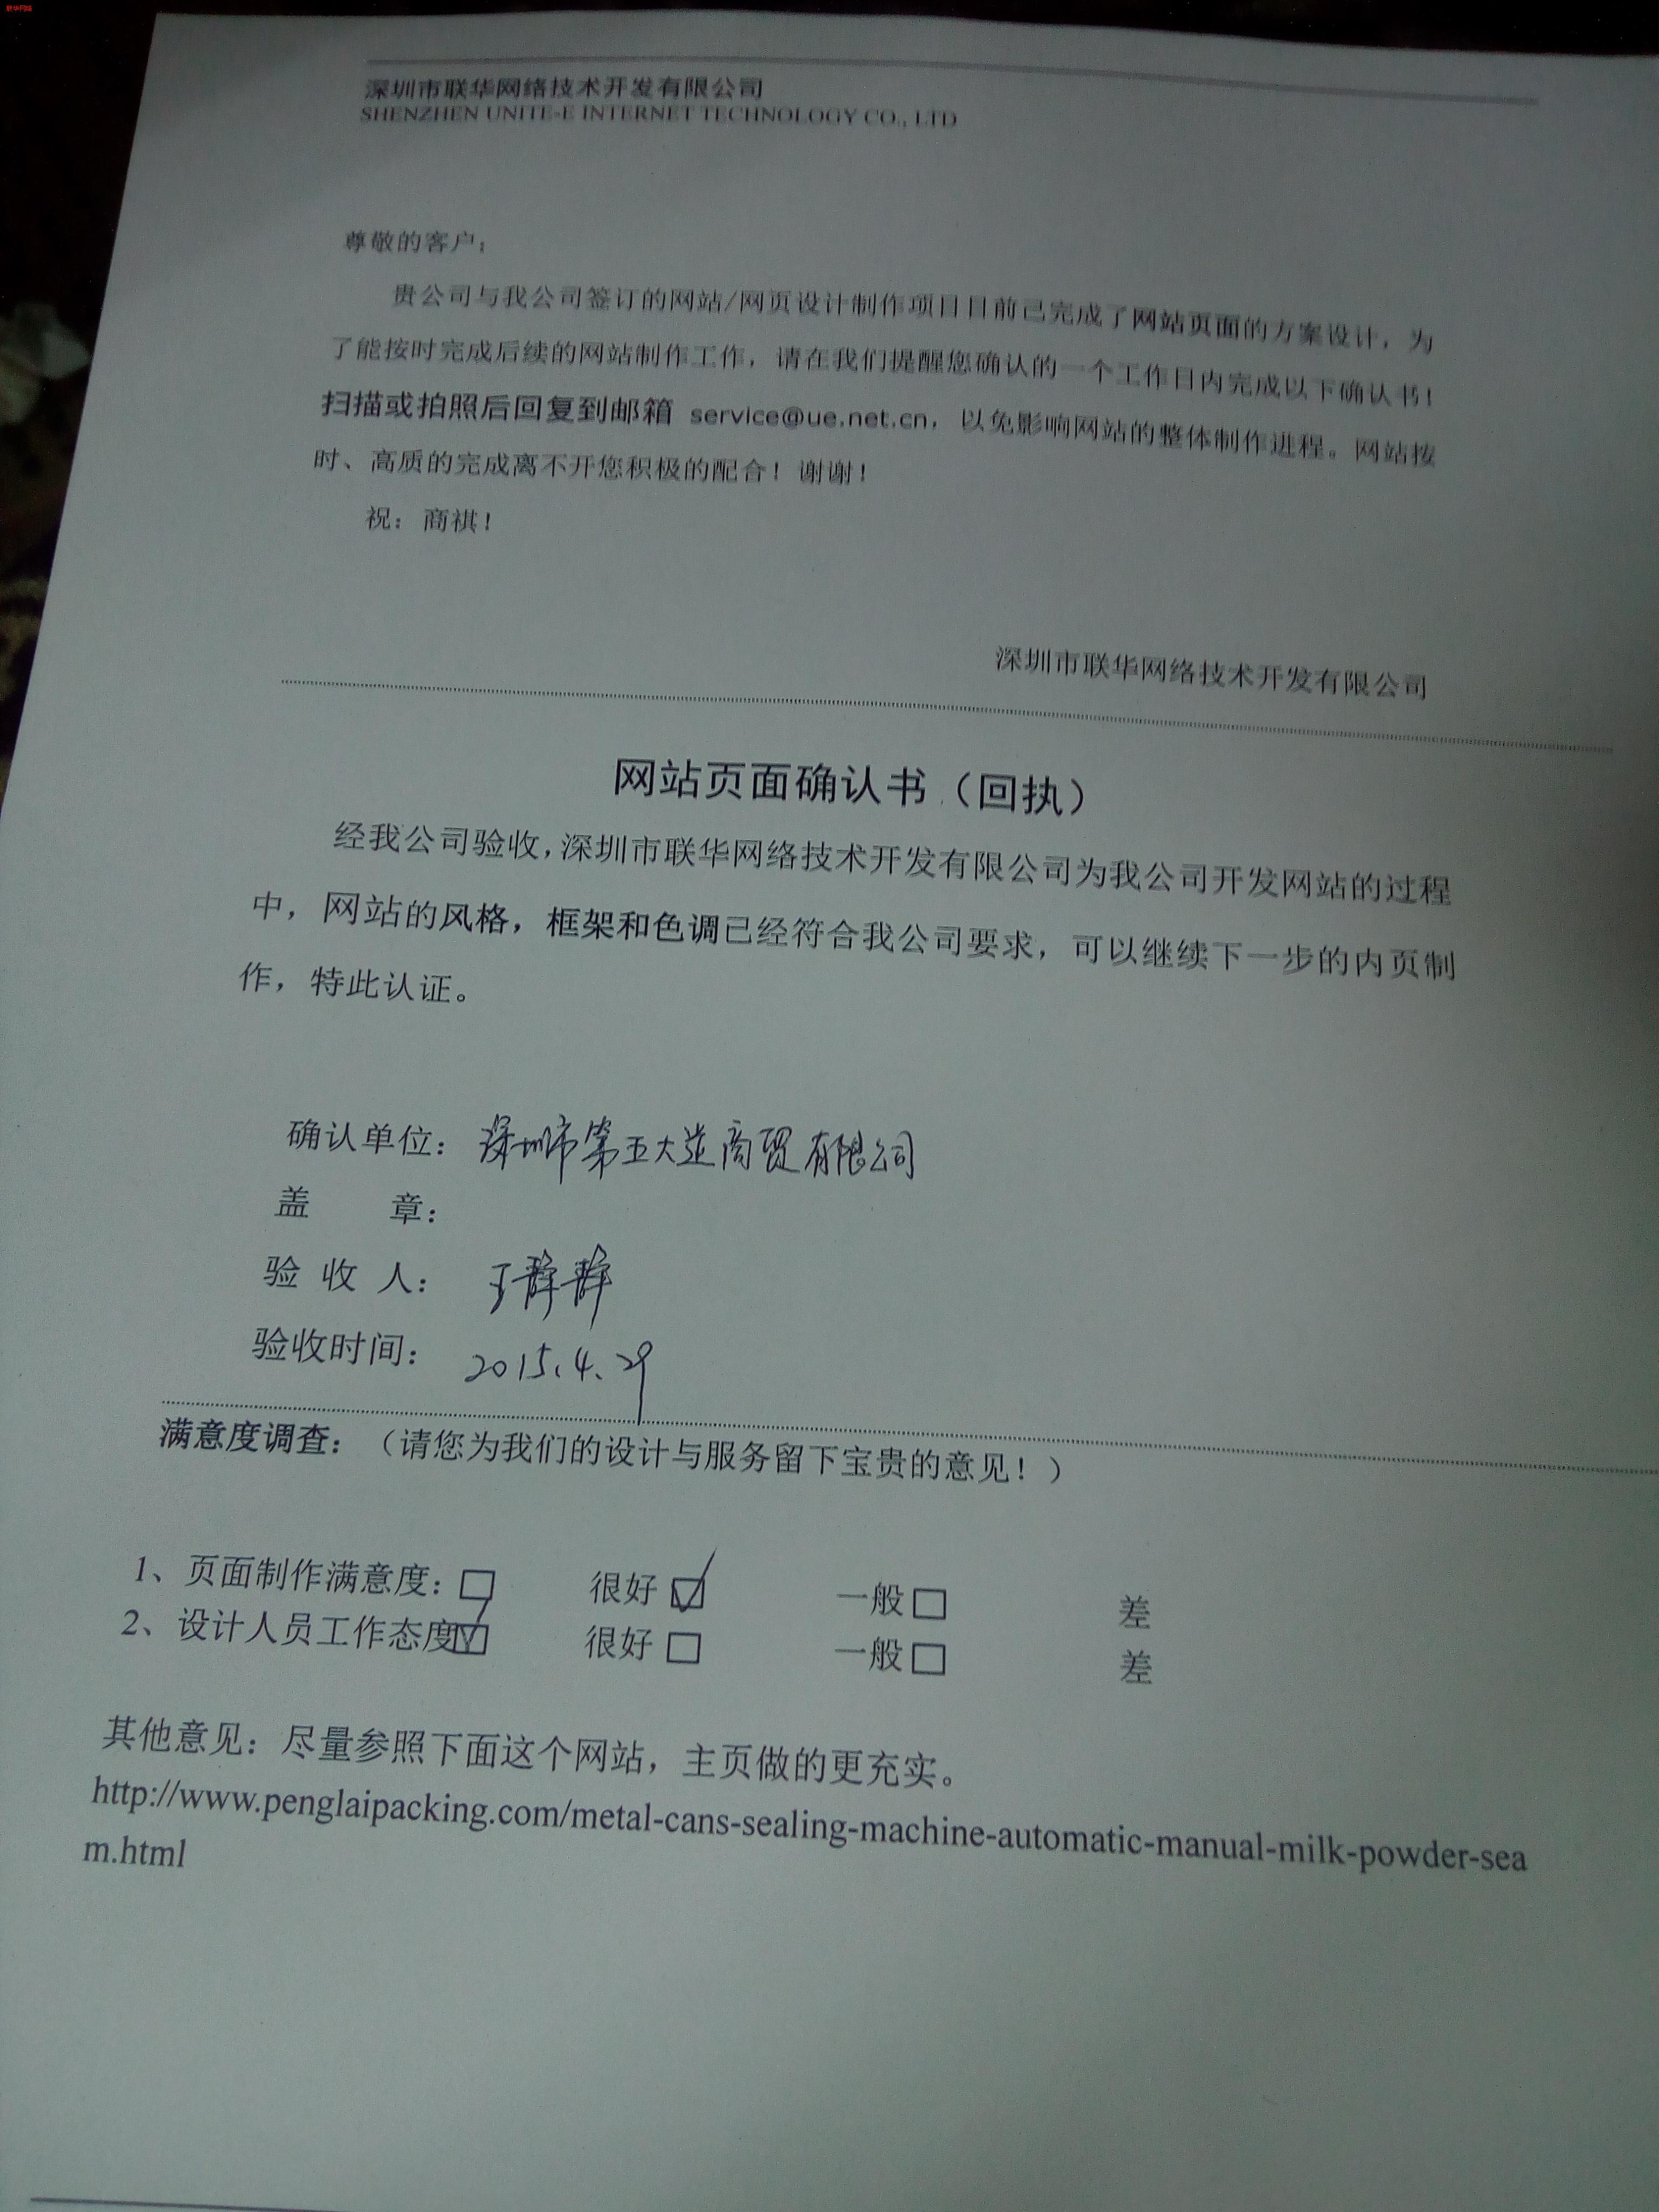 联华网络
深圳市联华网络技术开发有限公司
SHENZHEN UNITE-E INTERNET TECHNOLOGY CO., LTD
尊敬的客户：
贵公司与我公司签订的网站/网页设计制作项目目前已完成了网站页面的方案设计，为
了能按时完成后续的网站制作工作，请在我们提醒您确认的一个工作日内完成以下确认书！
扫描或拍照后回复到邮箱 service@ue.net.cn，以免影响网站的整体制作进程。网站按
时、高质的完成离不开您积极的配合！谢谢！
祝：商祺！
深圳市联华网络技术开发有限公司
网站页面确认书（回执）
经我公司验收，深圳市联华网络技术开发有限公司为我公司开发网站的过程
中，网站的风格，框架和色调已经符合我公司要求，可以继续下一步的内页制
作，特此认证。
确认单位：深圳市第五大道商贸有限公司
盖 章：
验 收 人：王静静
验收时间：2015.4.29
满意度调查：（请您为我们的设计与服务留下宝贵的意见！）
1、页面制作满意度：□ 很好 ☑ 一般 □ 差
2、设计人员工作态度 ☑ 很好 □ 一般 □ 差
其他意见：尽量参照下面这个网站，主页做的更充实。
http://www.penglaipacking.com/metal-cans-sealing-machine-automatic-manual-milk-powder-sea
m.html